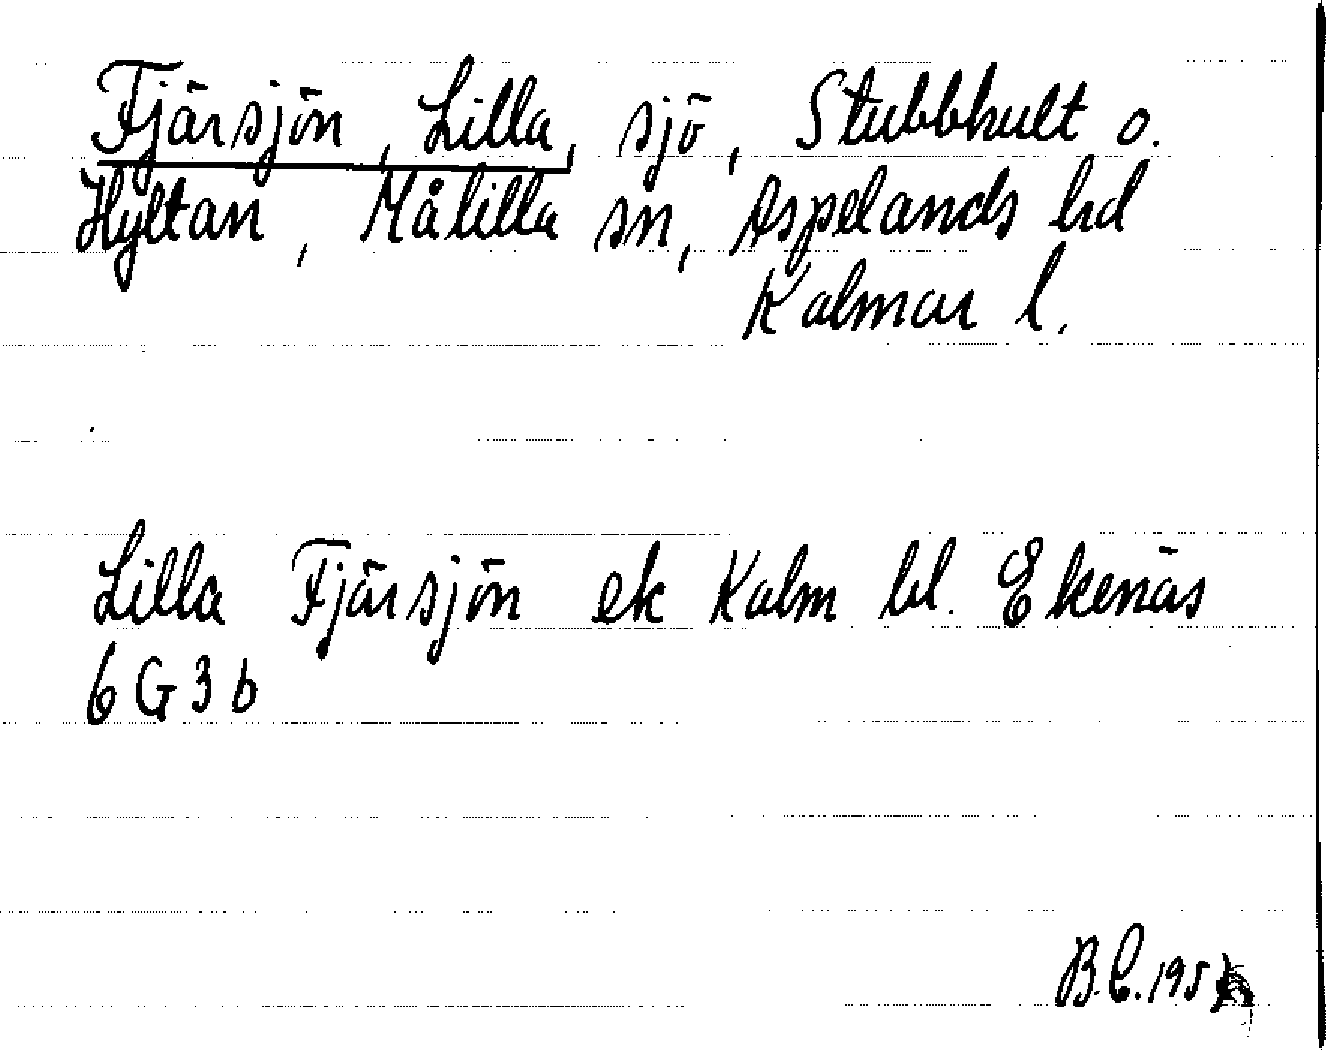 Fjärsjön, Lilla, sjö, Stubbhult o.
Hyltan, Målilla sn, Aspelands hd
Kalmar l.
Lilla Fjärsjön ek Kalm bl. Ekenäs
6 G 3 b
B.E.